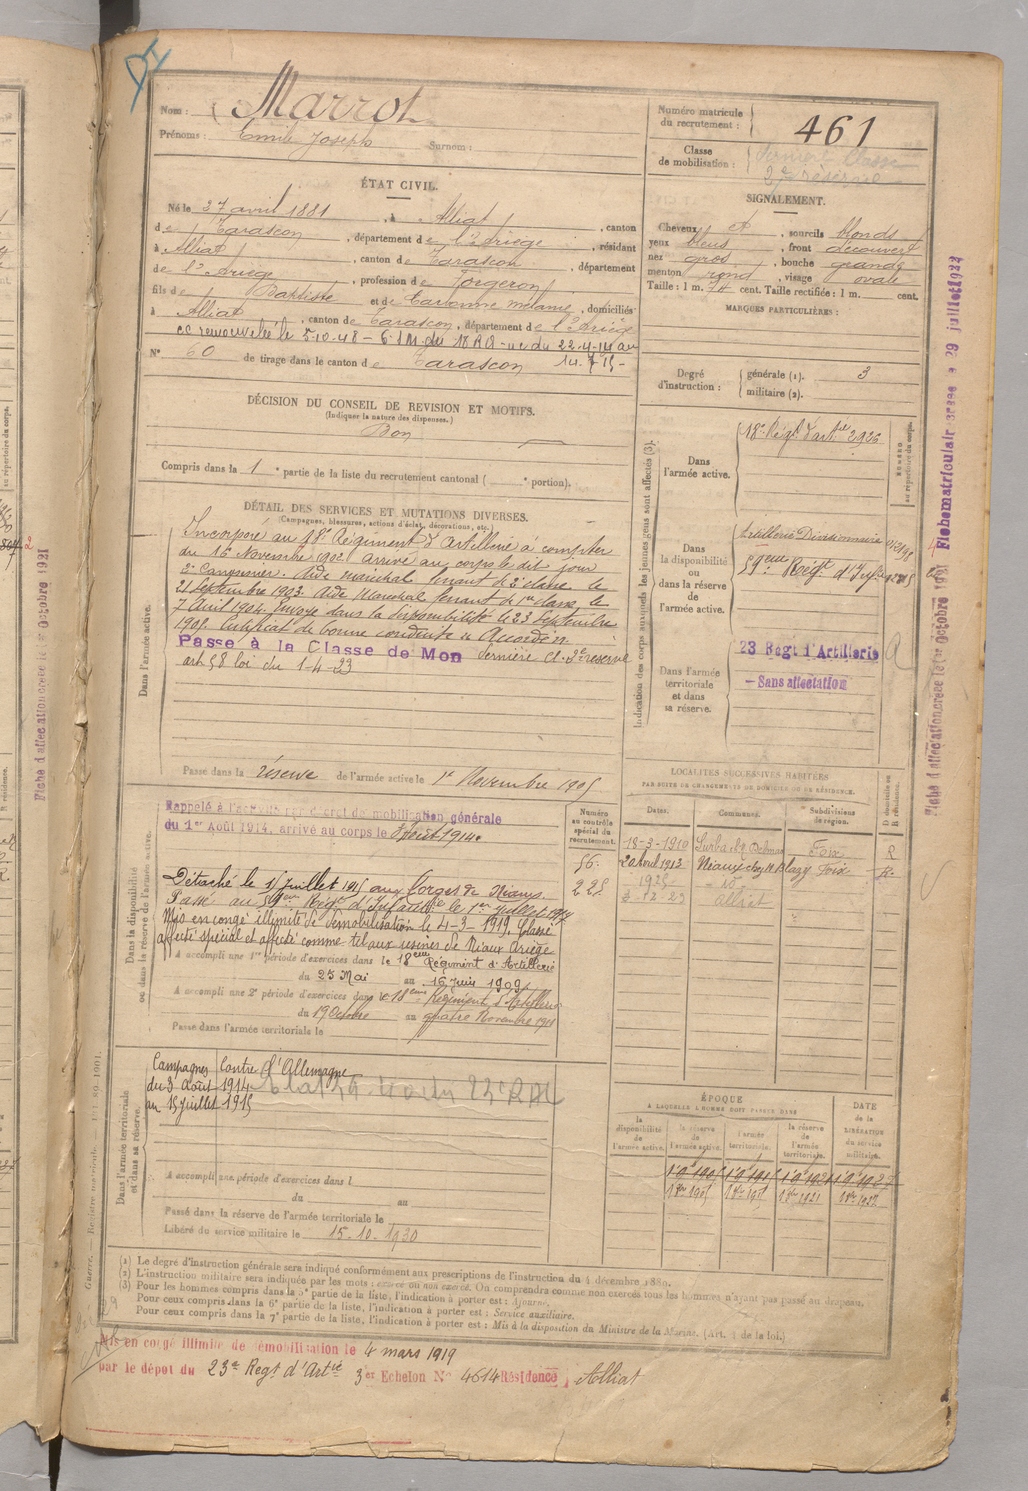 Nom : Marrot
Prénoms : Emile Joseph Surnom :
Numéro matricule du recrutement : 461
Classe de mobilisation : dernière Classe
2e réserve
ÉTAT CIVIL.
Né le 27 avril 1881, à Alliat, canton
de Tarascon, département de l'Ariège, résidant
à Alliat, canton de Tarascon, département
de l'Ariège, profession de forgeron
fils de Baptiste et de domiciliés
à Alliat, canton de Tarascon, département de l'Ariège
cc renouvelée le 5-10-48 - 6 du 18 RA - du 22-4-14 au
14.7.15 -
N° 60 de tirage dans le canton de Tarascon
SIGNALEMENT.
Cheveux et, sourcils blonds
yeux bleus, front découvert
nez gros, bouche grande
menton rond, visage ovale
Taille : 1 m. 74 cent. Taille rectifiée : 1 m. cent.
MARQUES PARTICULIÈRES :
Degré d'instruction : générale (1). 3
militaire (2).
DÉCISION DU CONSEIL DE REVISION ET MOTIFS.
(Indiquer la nature des dispenses.)
Bon
Compris dans la 1e partie de la liste du recrutement cantonal ( e portion).
DÉTAIL DES SERVICES ET MUTATIONS DIVERSES.
(Campagnes, blessures, actions d'éclat, décorations, etc.)
Dans l'armée active.
Incorporé au 18e Régiment d'Artillerie à compter
du 15 Novembre 1902 arrivé au corps le dit jour
2e Canonnier. Aide maréchal ferrant de 2e classe le
21 Septembre 1903. Aide Maréchal ferrant de 1re classe le
7 Avril 1904. Envoyé dans la disponibilité le 23 Septembre
1905. Certificat de bonne conduite « Accordé ».
Passe à la Classe de Mon dernière cl. 2e réserve
art 58 loi du 1-4-23
Passé dans la réserve de l'armée active le 1er Novembre 1905
Indication des corps auxquels les jeunes gens sont affectés (3).
NUMÉRO au répertoire du corps.
Dans l'armée active. 18e Régt d'artie 2926
Dans la disponibilité ou dans la réserve de l'armée active.
Artillerie Divisionnaire
59ème Régt d'Infie
Dans l'armée territoriale et dans sa réserve.
23 Régt d'Artillerie
- Sans affectation
Fiche matriculaire créée le 29 juillet 1922
Fiche d'affectation créée le 1er Octobre 1931
Fiche d'affectation créée le 1er Octobre 1931
Dans la disponibilité ou dans la réserve de l'armée active.
Rappelé à l'activité par décret de mobilisation générale
du 1er Août 1914, arrivé au corps le 3 Août 1914.
Détaché le 15 juillet 1915 aux forges de Niaux
Passé au 59ème Régt d'Infanterie le 1er Juillet 1917
Mis en congé illimité de démobilisation le 4-3-1919. Classé
affecté spécial et affecté comme tel aux usines de Niaux Ariège
A accompli une 1re période d'exercices dans le 18ème Régiment d'Artillerie
du 25 Mai au 16 Juin 1909
A accompli une 2e période d'exercices dans le 18ème Régiment d'Artillerie
du 19 Octobre au quatre Novembre 1911
Passé dans l'armée territoriale le
Numéro au contrôle spécial du recrutement.
56.
225
LOCALITÉS SUCCESSIVES HABITÉES
PAR SUITE DE CHANGEMENTS DE DOMICILE OU DE RÉSIDENCE.
Dates. Communes. Subdivisions de région. D domicile ou R résidence.
18-3-1910 Surba Foix R
20 avril 1913 Niaux Foix R
1925 - id -
3-12-29 Alliat
Dans l'armée territoriale et dans sa réserve.
Campagnes Contre l'Allemagne
du 3 Août 1914
au 15 juillet 1915
A accompli une période d'exercices dans l
du au
Passé dans la réserve de l'armée territoriale le
Libéré du service militaire le 15.10.1930
ÉPOQUE
A LAQUELLE L'HOMME DOIT PASSER DANS
la disponibilité de l'armée active.
la réserve de l'armée active.
l'armée territoriale.
la réserve de l'armée territoriale.
DATE de la LIBÉRATION du service militaire.
Guerre. — Registre matricule. — 1901.
(1) Le degré d'instruction générale sera indiqué conformément aux prescriptions de l'instruction du 4 décembre 1889.
(2) L'instruction militaire sera indiquée par les mots : exercé ou non exercé. On comprendra comme non exercés tous les hommes n'ayant pas passé au drapeau.
(3) Pour les hommes compris dans la 5e partie de la liste, l'indication à porter est : Ajourné.
Pour ceux compris dans la 6e partie de la liste, l'indication à porter est : Service auxiliaire.
Pour ceux compris dans la 7e partie de la liste, l'indication à porter est : Mis à la disposition du Ministre de la Marine. (Art. 4 de la loi.)
Mis en congé illimité de démobilisation le 4 mars 1919
par le dépôt du 23e Régt d'Artie 3er Echelon N° 4614 Résidence, Alliat